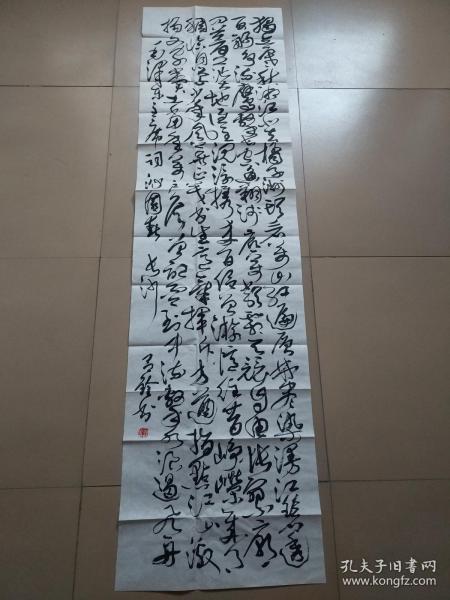 独立寒秋湘江北去橘子洲头看万山红遍层林尽染漫江碧透
百舸争流鹰击长空鱼翔浅底万类霜天竞自由怅寥廓
问苍茫大地谁主沉浮携来百侣曾游忆往昔峥嵘岁月
稠恰同学少年风华正茂书生意气挥斥方遒指点江山激
扬文字粪土当年万户侯曾记否到中流击水浪遏飞舟
毛泽东主席词沁园春长沙
孔夫子旧书网
www.kongfz.com